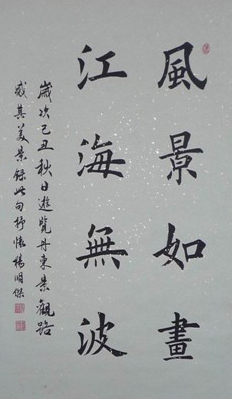 風景如畫
江海無波
歲次己丑秋日遊覽丹東景觀路
感其美景錄此句抒懷楊明傑